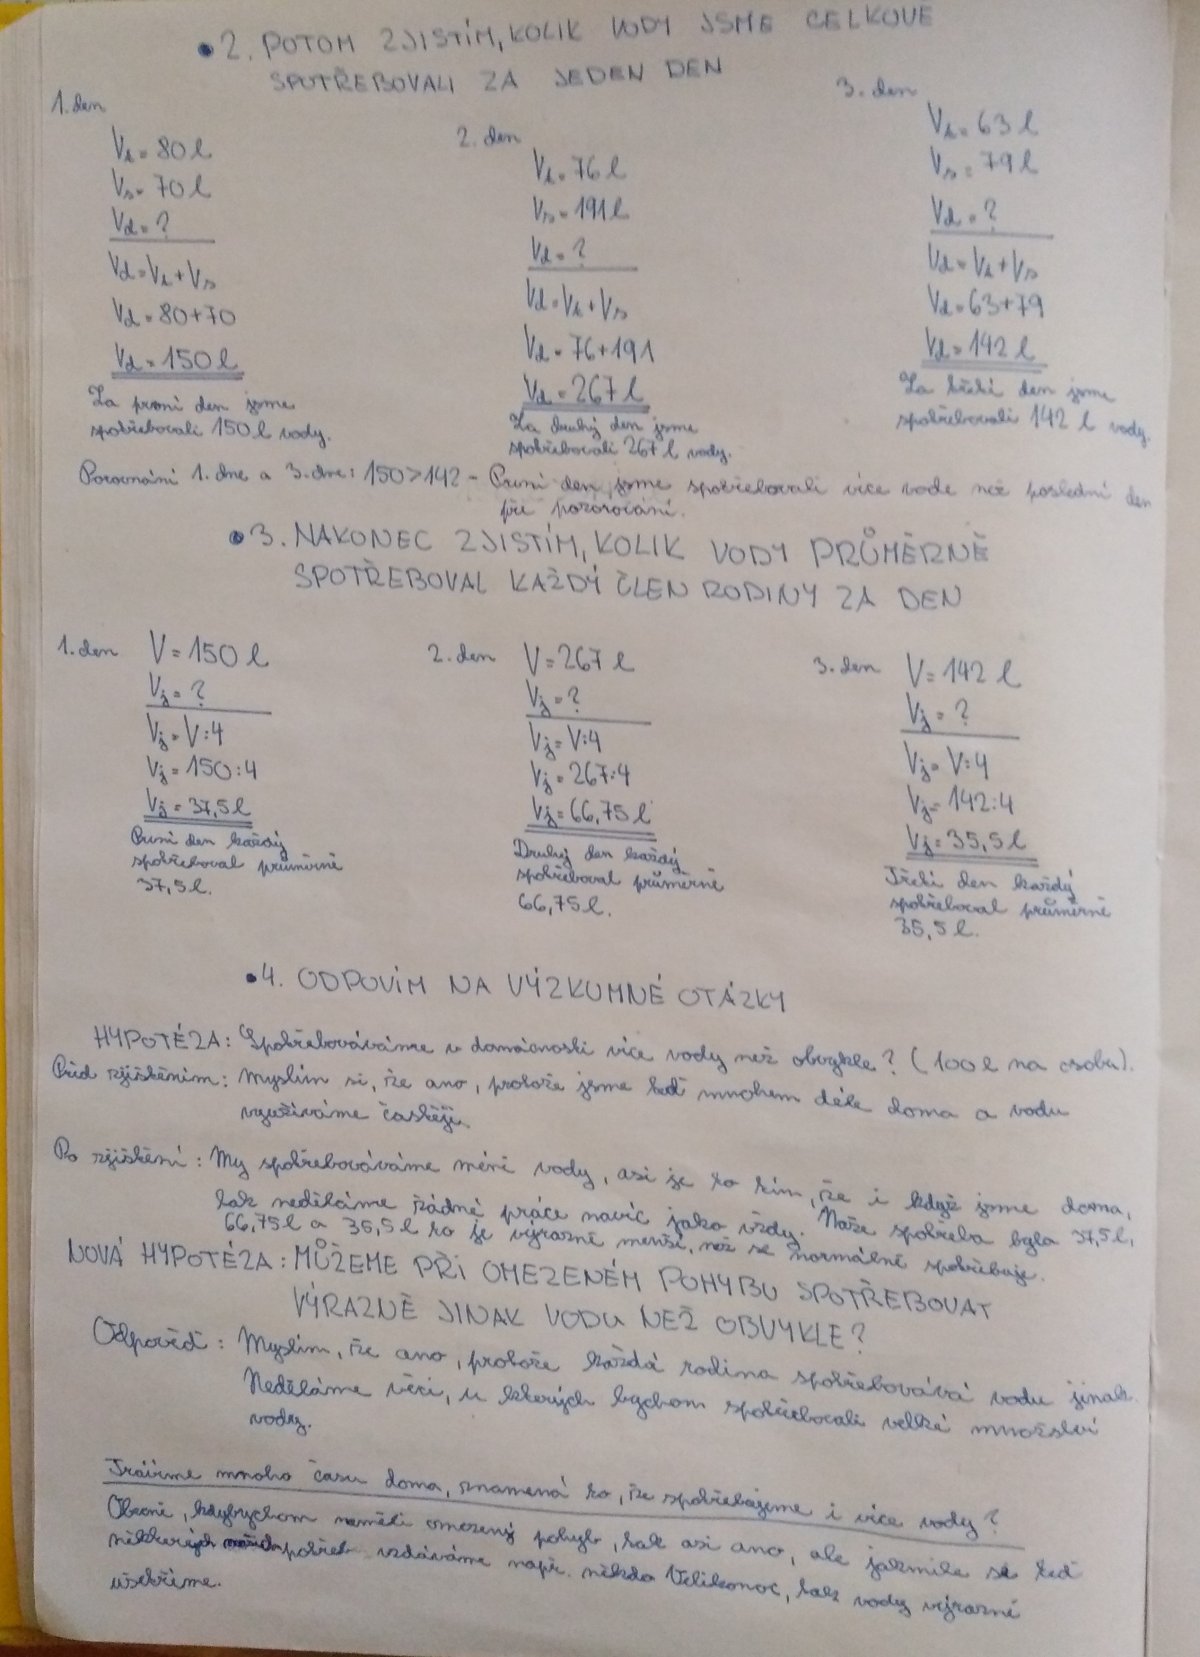 •2. POTOM ZJISTÍM, KOLIK VODY JSME CELKOVĚ
SPOTŘEBOVALI ZA JEDEN DEN
1. den
V = 80 l
Vs = 70 l
Vd = ?
Vd = V + Vs
Vd = 80+70
Vd = 150 l
Za první den jsme
spotřebovali 150 l vody.
2. den
V = 76 l
Vs = 191 l
Vd = ?
Vd = V + Vs
Vd = 76+191
Vd = 267 l
Za druhý den jsme
spotřebovali 267 l vody.
3. den
V = 63 l
Vs = 79 l
Vd = ?
Vd = V + Vs
Vd = 63+79
Vd = 142 l
Za třetí den jsme
spotřebovali 142 l vody.
Porovnání 1. dne a 3. dne: 150>142 - První den jsme spotřebovali více vode než poslední den
při pozorování.
•3. NAKONEC ZJISTÍM, KOLIK VODY PRŮMĚRNĚ
SPOTŘEBOVAL KAŽDÝ ČLEN RODINY ZA DEN
1. den V = 150 l
Vj = ?
Vj = V:4
Vj = 150:4
Vj = 37,5 l
První den každý
spotřeboval průměrně
37,5 l.
2. den V = 267 l
Vj = ?
Vj = V:4
Vj = 267:4
Vj = 66,75 l
Druhý den každý
spotřeboval průměrně
66,75 l.
3. den V = 142 l
Vj = ?
Vj = V:4
Vj = 142:4
Vj = 35,5 l
Třetí den každý
spotřeboval průměrně
35,5 l.
•4. ODPOVÍM NA VÝZKUMNÉ OTÁZKY
HYPOTÉZA: Spotřebováváme v domácnosti více vody než obvykle? (100 l na osobu).
Před zjištěním: Myslím si, že ano, protože jsme teď mnohem déle doma a vodu
využíváme častěji.
Po zjištění: My spotřebováváme méně vody, asi je to tím, že i když jsme doma,
tak neděláme žádné práce navíc jako vždy. Naše spotřeba byla 37,5 l,
66,75 l a 35,5 l to je výrazně menší, než se normálně spotřebuje.
NOVÁ HYPOTÉZA: MŮŽEME PŘI OMEZENÉM POHYBU SPOTŘEBOVAT
VÝRAZNĚ JINAK VODU NEŽ OBVYKLE?
Odpověď: Myslím, že ano, protože každá rodina spotřebovává vodu jinak.
Neděláme věci, u kterých bychom spotřebovali velké množství
vody.
Trávíme mnoho času doma, znamená to, že spotřebujeme i více vody?
Obecně, kdybychom neměli omezený pohyb, tak asi ano, ale jakmile se teď
některých potřeb vzdáváme např. někdo Velikonoc, tak vody výrazně
ušetříme.